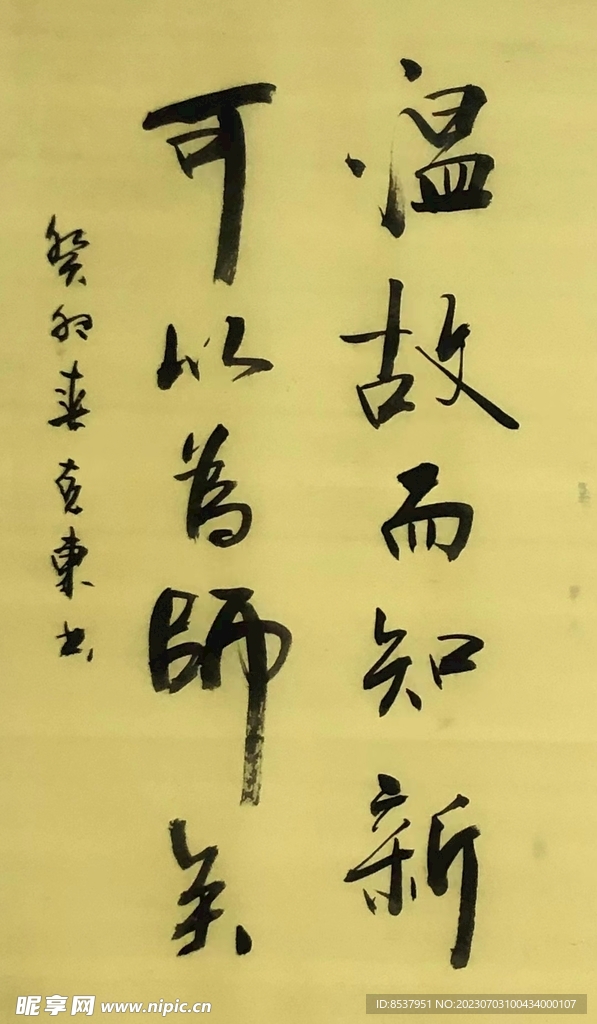 温故而知新
可以為師矣
癸卯春克東书
昵享网 www.nipic.cn
ID:8537951 NO:20230703100434000107